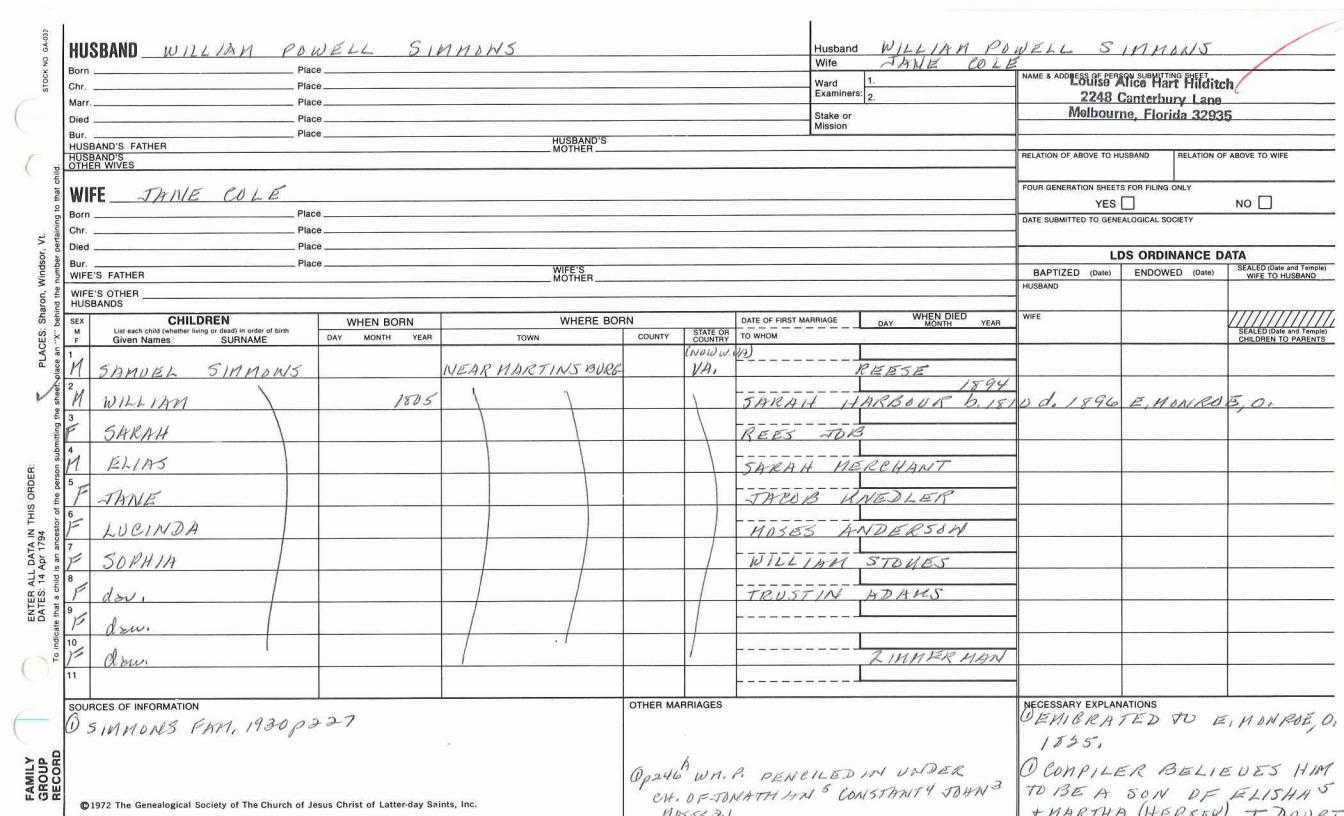 STOCK NO. GA-032
HUSBAND WILLIAM POWELL SIMMONS
Born Place
Chr. Place
Marr. Place
Died Place
Bur. Place
HUSBAND'S FATHER HUSBAND'S MOTHER
HUSBAND'S OTHER WIVES
Husband WILLIAM POWELL SIMMONS
Wife JANE COLE
Ward Examiners: 1.
2.
Stake or Mission
NAME & ADDRESS OF PERSON SUBMITTING SHEET
Louise Alice Hart Hilditch
2248 Canterbury Lane
Melbourne, Florida 32935
RELATION OF ABOVE TO HUSBAND RELATION OF ABOVE TO WIFE
FOUR GENERATION SHEETS FOR FILING ONLY
YES NO
DATE SUBMITTED TO GENEALOGICAL SOCIETY
WIFE JANE COLE
Born Place
Chr. Place
Died Place
Bur. Place
WIFE'S FATHER WIFE'S MOTHER
WIFE'S OTHER HUSBANDS
LDS ORDINANCE DATA
BAPTIZED (Date) ENDOWED (Date) SEALED (Date and Temple) WIFE TO HUSBAND
HUSBAND
WIFE
SEALED (Date and Temple) CHILDREN TO PARENTS
SEX M F
CHILDREN
List each child (whether living or dead) in order of birth
Given Names SURNAME
WHEN BORN
DAY MONTH YEAR
WHERE BORN
TOWN COUNTY STATE OR COUNTRY
DATE OF FIRST MARRIAGE
TO WHOM
WHEN DIED
DAY MONTH YEAR
1 M SAMUEL SIMMONS NEAR MARTINSBURG (NOW W.VA) VA. REESE
2 M WILLIAM 1805 1894 SARAH HARBOUR b. 1810 d. 1896 E. MONROE, O.
3 F SARAH REES JOB
4 M ELIAS SARAH MERCHANT
5 F JANE JACOB KNEDLER
6 F LUCINDA MOSES ANDERSON
7 F SOPHIA WILLIAM STOKES
8 F dau. TRUSTIN ADAMS
9 F dau.
10 F dau. ZIMMERMAN
11
SOURCES OF INFORMATION
① SIMMONS FAM, 1930 p227
OTHER MARRIAGES
① p246 WM. P. PENCILED IN UNDER
CH. OF JONATHAN⁵ CONSTANT⁴ JOHN³
NECESSARY EXPLANATIONS
① EMIGRATED TO E. MONROE, O.
1835.
① COMPILER BELIEVES HIM
TO BE A SON OF ELISHA⁵
+ MARTHA (HERSEY)
©1972 The Genealogical Society of The Church of Jesus Christ of Latter-day Saints, Inc.
FAMILY GROUP RECORD
ENTER ALL DATA IN THIS ORDER:
DATES: 14 Apr 1794 PLACES: Sharon, Windsor, Vt.
To indicate that a child is an ancestor of the person submitting the sheet, place an "X" behind the number pertaining to that child.